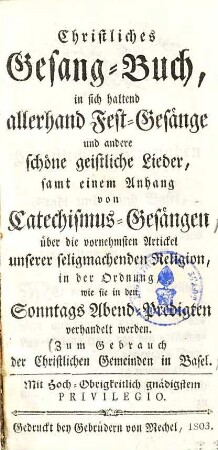 Christliches
Gesang-Buch,
in sich haltend
allerhand Fest-Gesänge
und andere
schöne geistliche Lieder,
samt einem Anhang
von
Catechismus-Gesängen,
über die vornehmsten Artickel
unserer seligmachenden Religion,
in der Ordnung
wie sie in den
Sonntags Abend-Predigten
verhandelt werden.
(Zum Gebrauch
der Christlichen Gemeinden in Basel.
Mit Hoch-Obrigkeitlich gnädigstem
PRIVILEGIO.
Gedruckt bey Gebrüdern von Mechel, 1803.